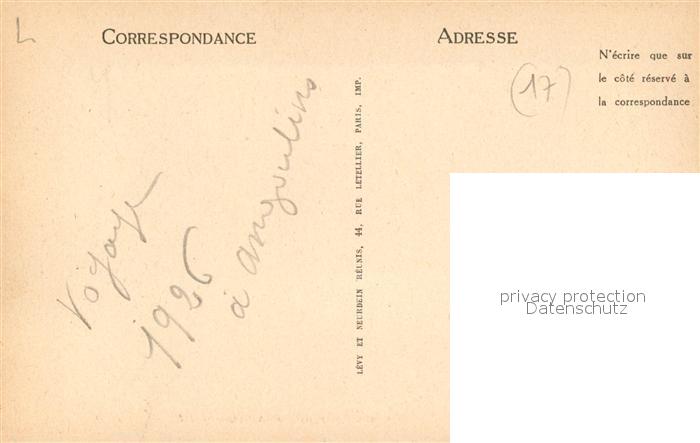 L
CORRESPONDANCE
ADRESSE
N'écrire que sur
le côté réservé à
la correspondance
(17)
Voyage
1926
à angoulins
LÉVY ET NEURDEIN RÉUNIS, 44, RUE LETELLIER, PARIS, IMP.
privacy protection
Datenschutz